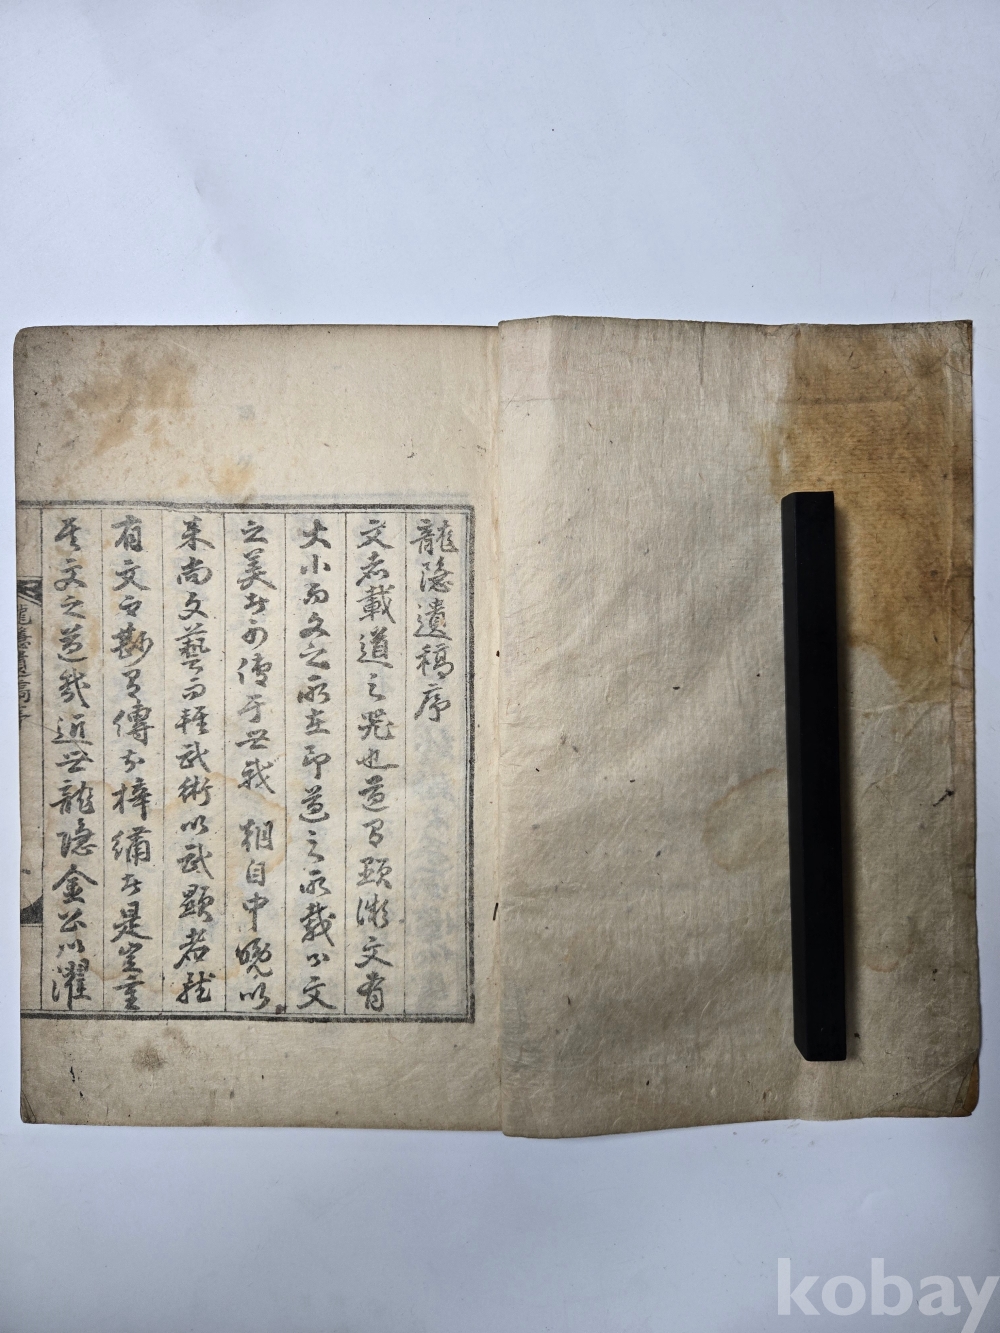 龍隱遺稿序
文者載道之器也道有顯微文有
大小而文之所在即道之所載以文
之美者可傳于世我 朝自中晩以
来尚文藝而輕武術以武顯者雖
有文而尠有傳爲梓繡者是豈重
其文之道哉近世龍隱金公以濯
龍隱遺稿序
kobay